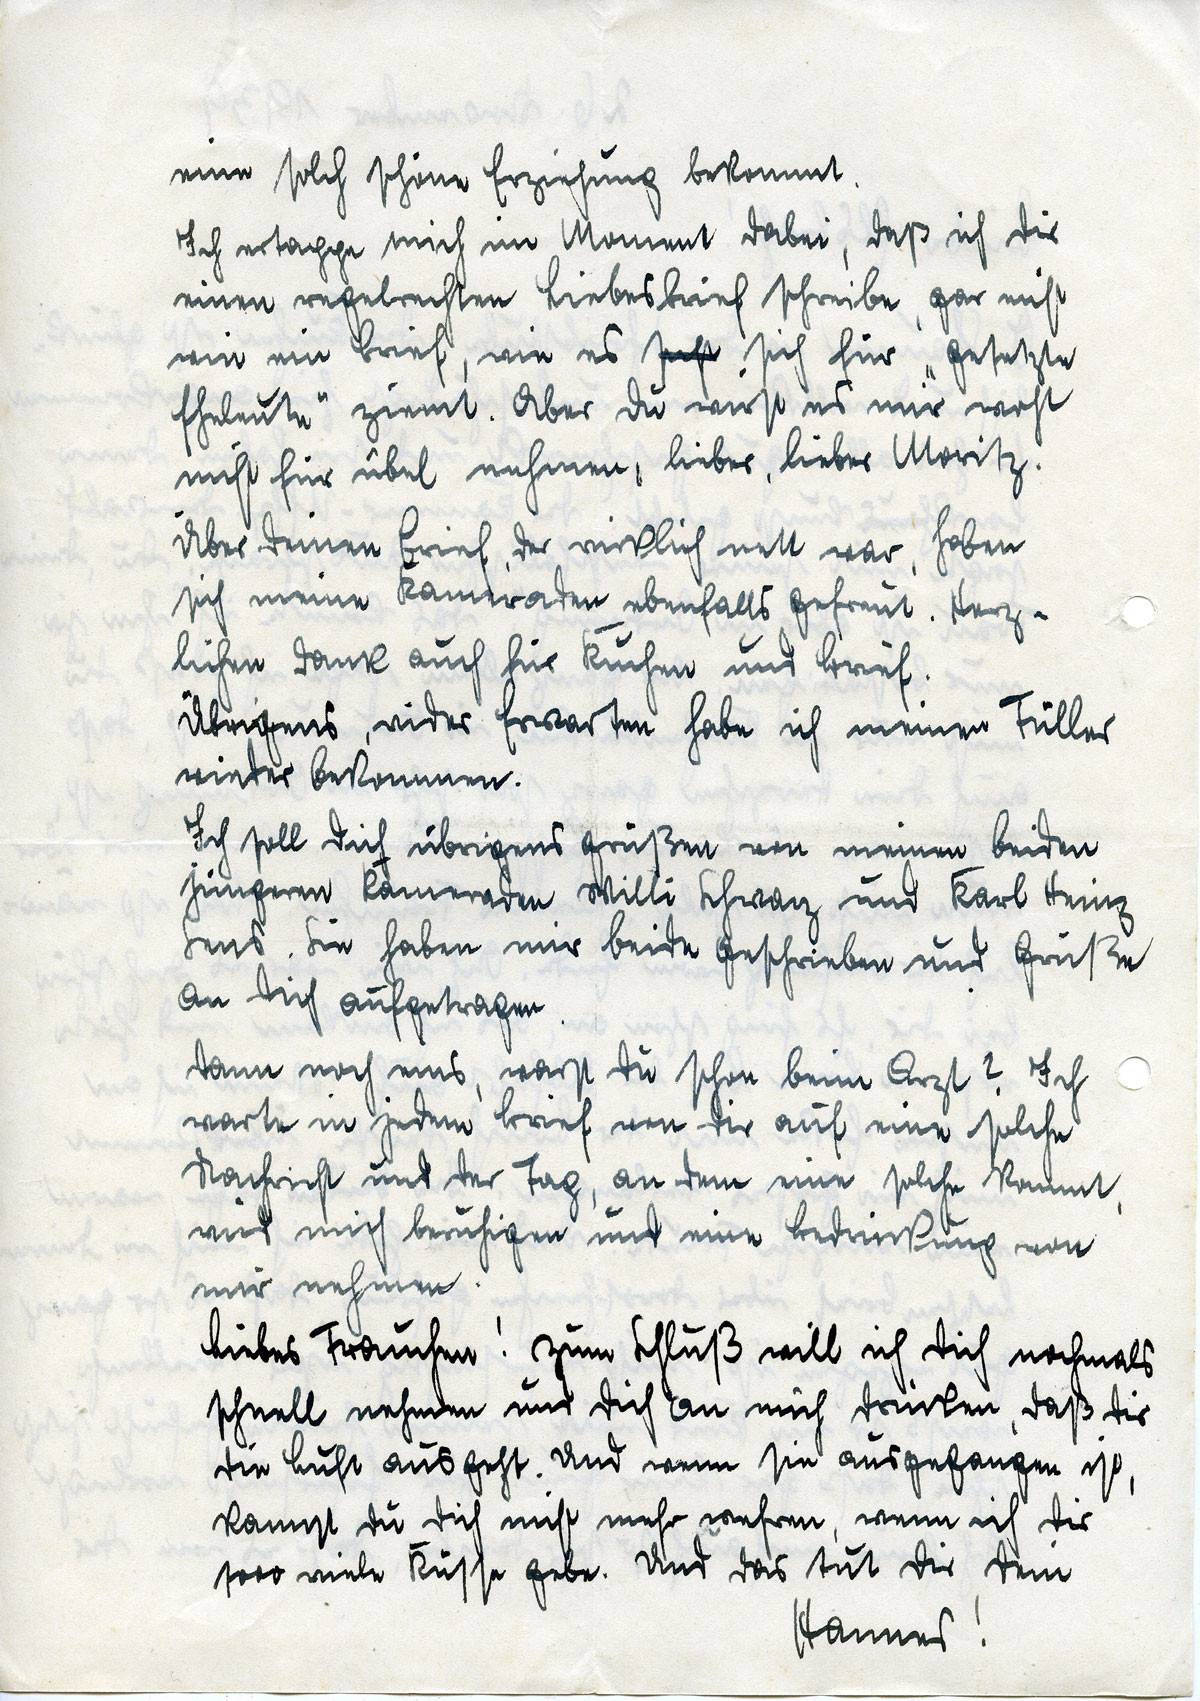 eine solch schöne Erziehung bekommt.
Ich ertappe mich im Moment dabei, daß ich dir
einen regelrechten Liebesbrief schreibe, gar nicht
wie ein Brief, wie es sich für „gesetzte
Eheleute" ziemt. Aber du wirst es mir wohl
nicht für übel nehmen, lieber, lieber Moritz.
Über deinen Brief, der wirklich nett war, haben
sich meine Kameraden ebenfalls gefreut. Herz-
lichen Dank auch für Kuchen und Brief.
Übrigens, wider Erwarten habe ich meinen Füller
wieder bekommen.
Ich soll dich übrigens grüßen von meinen beiden
jüngeren Kameraden Willi Schwanz und Karl Heinz
Sens. Sie haben mir beide geschrieben und Grüße
an dich aufgetragen.
Dann noch eins, warst du schon beim Arzt? Ich
warte in jedem Brief von dir auf eine solche
Nachricht und der Tag, an dem eine solche kommt,
wird mich beruhigen und eine Bedrückung von
mir nehmen.
Liebes Frauchen! Zum Schluß will ich dich nochmals
schnell nehmen und dich an mich drücken, daß dir
die Luft ausgeht. Und wenn sie ausgegangen ist,
kannst du dich nicht mehr wehren, wenn ich dir
sooo viele Küsse gebe. Und das tut dir dein
Hannes!